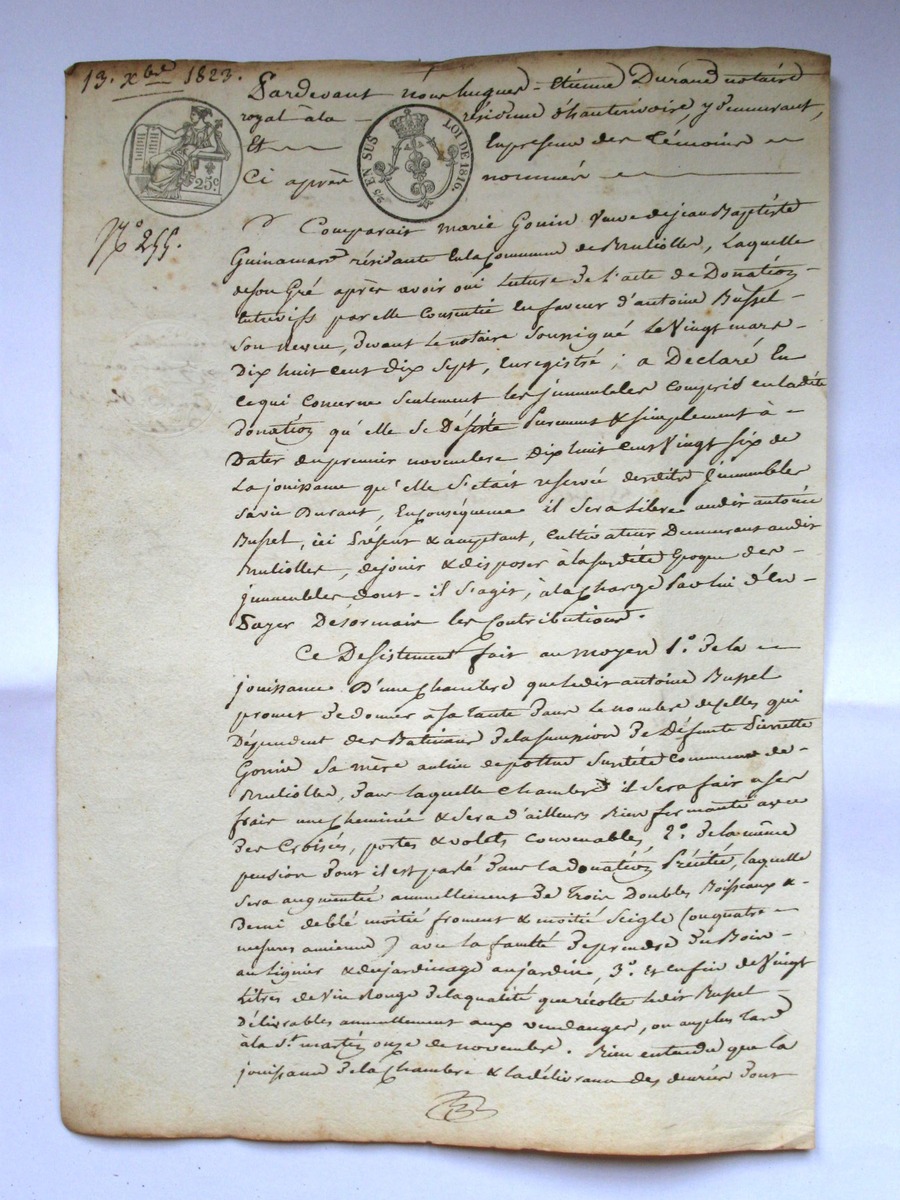 13. Xbre 1823.
Pardevant nous hugues-Etienne Durand notaire
royal à la résidence d'hauterivoire, y demeurant,
Et En presence des Témoins
Ci après nommés
25c
25 EN SUS LOI DE 1816.
N° 255.
Comparait marie Gonin Veuve de jean Baptiste
Guinamard résidante en la Commune de Brulioles, Laquelle
de son Gré après avoir oui lecture de l'acte de Donation
Entrevifs par elle Consentie en faveur d'antoine Bussel
son neveu, devant le notaire soussigné le Vingt mars
Dix huit cent Dix Sept, Enregistré ; a Declaré En
ce qui Concerne seulement les jmmeubles compris en ladte
donation qu'elle se Désiste Purement & simplement à
Dater du premier novembre Dix huit cent Vingt six de
La jouissance qu'elle S'etait reservée desdits jmmeubles
sa vie Durant, En conséquence il sera libre audit antoine
Bussel, ici Présent & acceptant, Cultivateur Demeurant audit
Brulioles, de jouir & disposer à la susdite Epoque des
jmmeubles dont il s'agit, à la charge par lui d'en
Payer Désormais les Contributions.
Ce Desistement fait au moyen 1° de la
jouissance D'une Chambre que ledit antoine Bussel
promet de donner à sa tante dans le nombre de celles qui
Dépendent des Batimans de la succession de Défunte Pierrette
Gonin sa mère au lieu de pottus susdite Commune de
Brulioles, dans laquelle chambre il sera fait a ses
frais une cheminée & sera d'ailleurs bien fermante avec
des Croisés, portes & volets convenables, 2° de la même
pension dont il est parlé dans la donation Précitée, laquelle
sera augmentée annuellement de trois Doubles Boisseaux &
demi de blé moitié froment & moitié seigle (ou quatre
mesures anciennes) avec la faculté de prendre du Bois
au lignier & du jardinage au jardin, 3° et enfin de Vingt
Litres de Vin Rouge de la qualité que récolte ledit Bussel
Délivrables annuellement aux vendanges, ou au plus tard
à la St martin onze de novembre. Bien entendu que la
jouissance de la Chambre & la délivrance des denrées dont